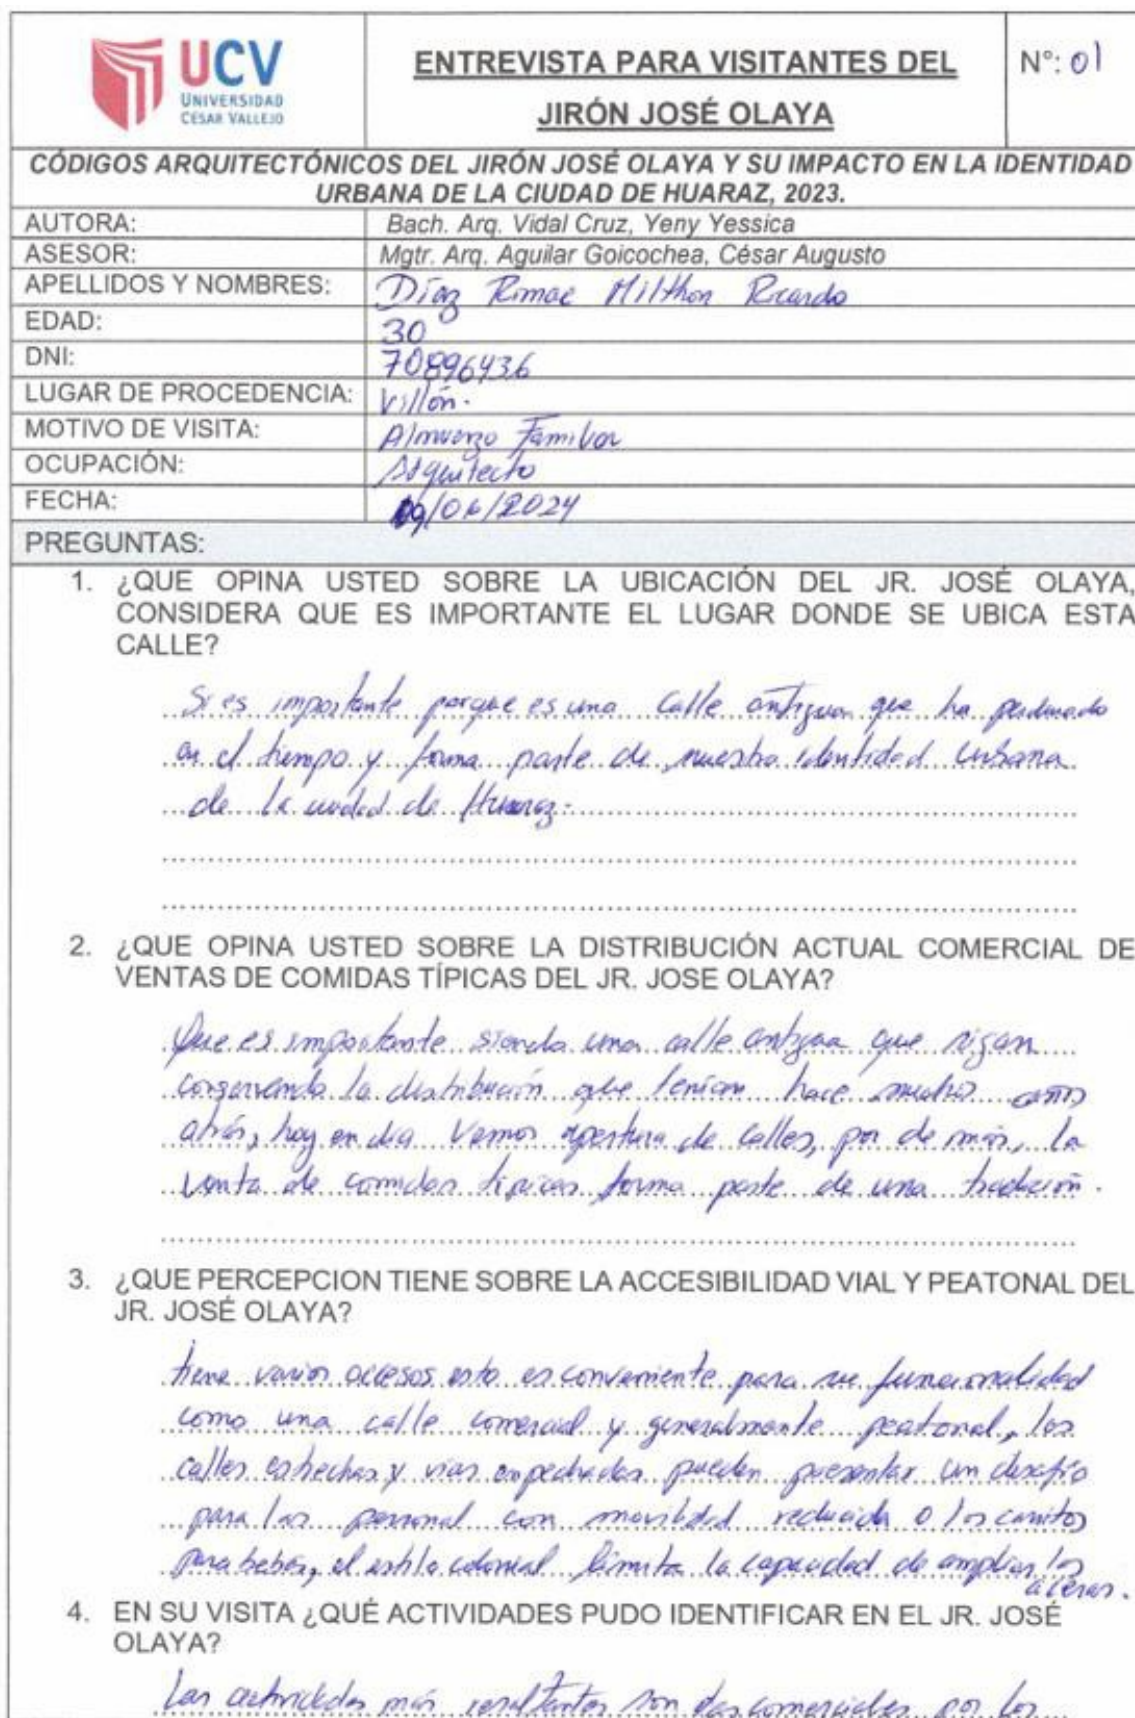 UCV
UNIVERSIDAD
CÉSAR VALLEJO
ENTREVISTA PARA VISITANTES DEL
JIRÓN JOSÉ OLAYA
N°: 01
CÓDIGOS ARQUITECTÓNICOS DEL JIRÓN JOSÉ OLAYA Y SU IMPACTO EN LA IDENTIDAD
URBANA DE LA CIUDAD DE HUARAZ, 2023.
AUTORA: Bach. Arq. Vidal Cruz, Yeny Yessica
ASESOR: Mgtr. Arq. Aguilar Goicochea, César Augusto
APELLIDOS Y NOMBRES: Díaz Rimac Milthon Ricardo
EDAD: 30
DNI: 70896436
LUGAR DE PROCEDENCIA: Villón.
MOTIVO DE VISITA: Almuerzo Familiar
OCUPACIÓN: Arquitecto
FECHA: 09/06/2024
PREGUNTAS:
1. ¿QUE OPINA USTED SOBRE LA UBICACIÓN DEL JR. JOSÉ OLAYA,
CONSIDERA QUE ES IMPORTANTE EL LUGAR DONDE SE UBICA ESTA
CALLE?
Si es importante porque es una calle antigua que ha perdurado
en el tiempo y forma parte de nuestra identidad urbana
de la ciudad de Huaraz.
2. ¿QUE OPINA USTED SOBRE LA DISTRIBUCIÓN ACTUAL COMERCIAL DE
VENTAS DE COMIDAS TÍPICAS DEL JR. JOSE OLAYA?
Que es importante siendo una calle antigua que sigan
conservando la distribución que tenían hace muchos años
atrás, hoy en dia vemos apertura de calles, por de más, la
venta de comidas tipicas forma parte de una tradición.
3. ¿QUE PERCEPCION TIENE SOBRE LA ACCESIBILIDAD VIAL Y PEATONAL DEL
JR. JOSÉ OLAYA?
tiene varios accesos esto es conveniente para su funcionalidad
como una calle comercial y generalmente peatonal, las
calles estrechas y vias empedradas pueden presentar un desafío
para las personal con movilidad reducida o los carritos
para bebés, el estilo colonial limita la capacidad de ampliar las
aceras.
4. EN SU VISITA ¿QUÉ ACTIVIDADES PUDO IDENTIFICAR EN EL JR. JOSÉ
OLAYA?
Las actividades más resaltantes son las comerciales por los